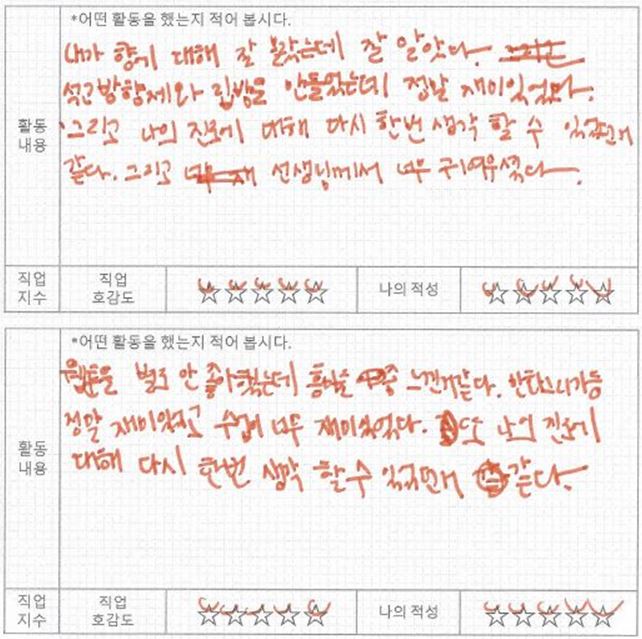 *어떤 활동을 했는지 적어 봅시다.
내가 향기 대해 잘 몰랐는데 잘 알앗다.
석고방향제와 립밤을 만들었는데 정말 재미있었다.
활동
내용
그리고 나의 진로에 대해 다시 한번 생각 할 수 있었던거
같다. 그리고 선생님께서 너무 귀여우셨다.
직업
지수
직업
호감도
나의 적성
*어떤 활동을 했는지 적어 봅시다.
웹툰을 별로 안 좋아했는데 흥미를 느낀거같다.
정말 재미있었고 수업이 너무 재미있었다. 또 나의 진로에
활동
내용
대해 다시 한번 생각 할 수 있었던거 같다.
직업
지수
직업
호감도
나의 적성